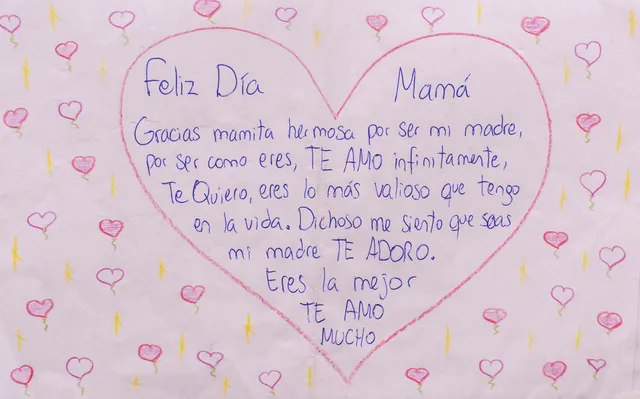 Feliz Día Mamá
Gracias mamita hermosa por ser mi madre,
por ser como eres, TE AMO infinitamente,
Te Quiero, eres lo más valioso que tengo
en la vida. Dichoso me siento que seas
mi madre TE ADORO.
Eres la mejor
TE AMO
MUCHO